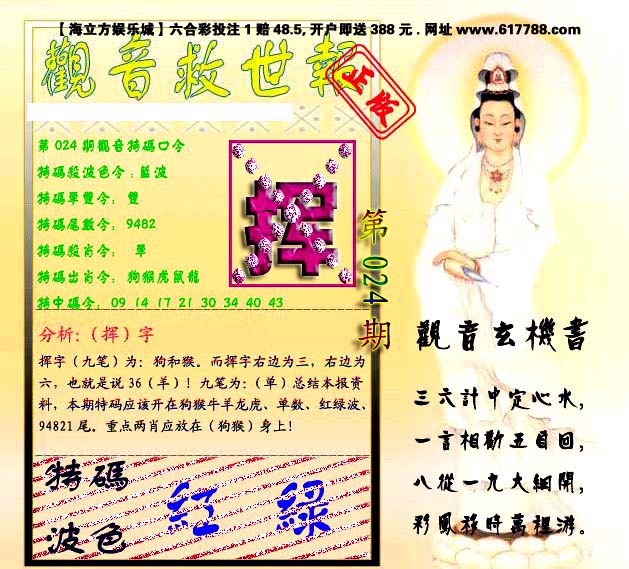 【海立方娱乐城】六合彩投注 1 赔 48.5, 开户即送 388 元 . 网址 www.617788.com
觀音救世報
正版
第 024 期觀音特碼口令
特碼殺波色令 : 藍波
特碼單雙令: 雙
特碼尾數令: 9482
特碼殺肖令: 單
特碼出肖令: 狗猴虎鼠龍
特中碼令: 09 14 17 21 30 34 40 43
挥
第 024 期
分析:（挥）字
挥字（九笔）为: 狗和猴。而挥字右边为三, 右边为
六, 也就是说 36（羊）! 九笔为:（单）总结本报资
料, 本期特码应该开在狗猴牛羊龙虎、单数、红绿波、
94821 尾。重点两肖应放在（狗猴）身上!
特碼
波色
紅 綠
觀音玄機書
三六計中定心水,
一言相勸五目回,
八從一九大細開,
彩鳳移時萬裡游。